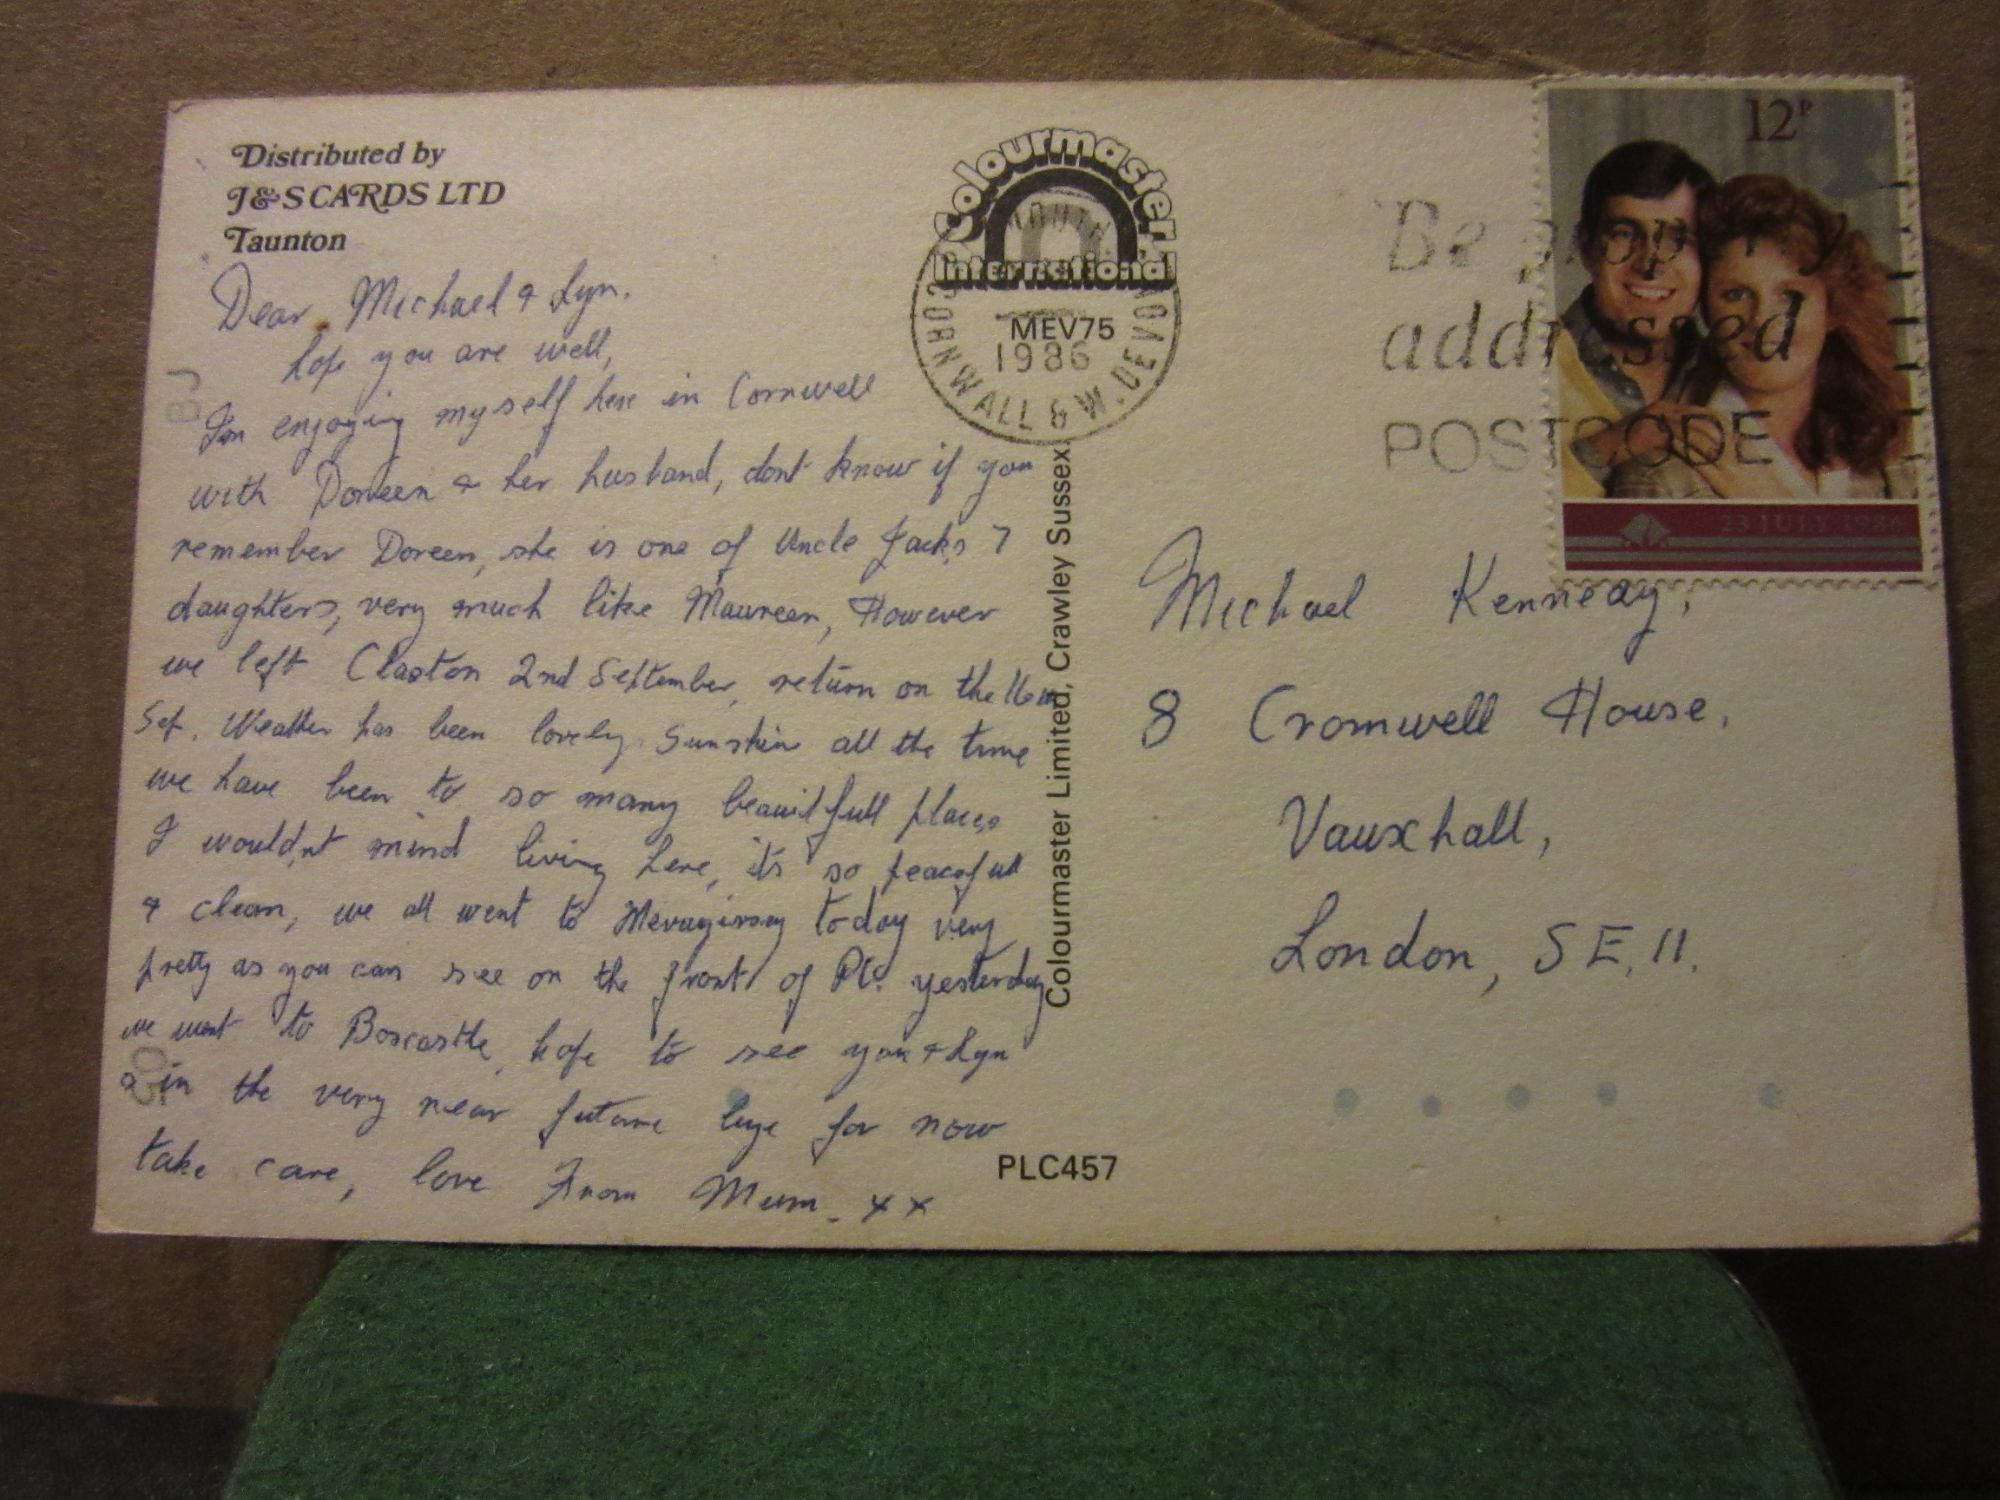 Distributed by
J&S CARDS LTD
Taunton
Dear Michael & Lyn.
hope you are well,
I'm enjoying myself here in Cornwell
with Doreen & her husband, dont know if you
remember Doreen, she is one of Uncle Jack,s 7
daughters, very much like Maureen, However
we left Clacton 2nd September, return on the 16th
Sep. Weather has been lovely Sunshin all the time
we have been to so many beautifull places
I would,nt mind living here, it's so peacefull
& clean, we all went to Mevagissey today very
pretty as you can see on the front of P/c. yesterday
we went to Boscastle, hope to see you & Lyn
in the very near future bye for now
take care, love From Mum - x x
Colourmaster
International
MEV75
1986
CORNWALL & W. DEVON
Colourmaster Limited, Crawley Sussex.
PLC457
12P
Be properly
addressed
POSTCODE
23 JULY 1986
Michael Kennedy,
8 Cromwell House,
Vauxhall,
London, SE.11.